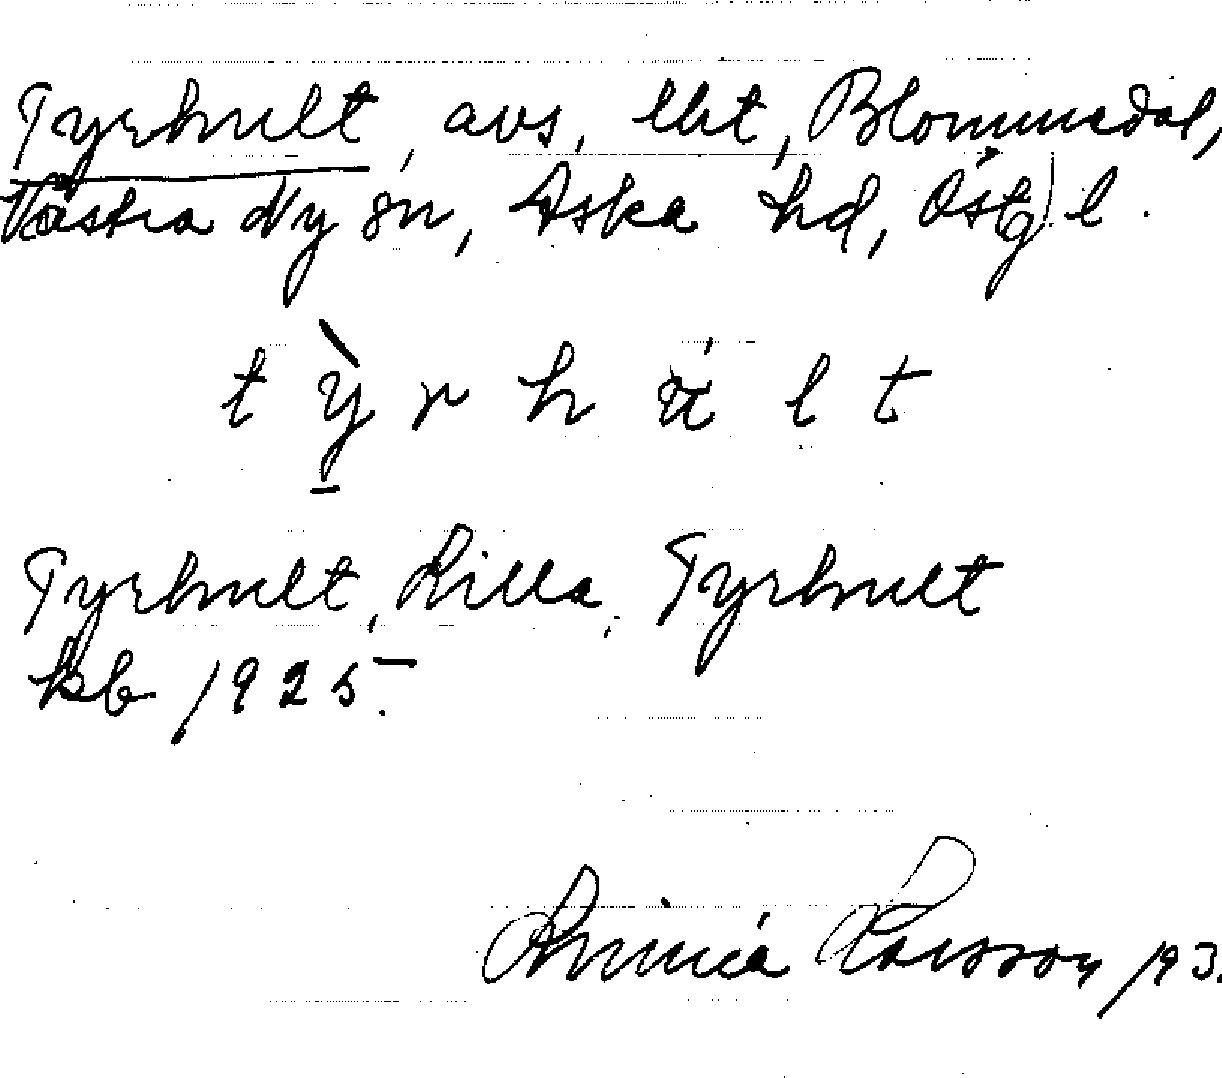 Tyrhult, avs, lht, Blommedal,
Västra Ny sn, Aska hd, Östg l.
t ỳ r h u̇ l t
Tyrhult, Lilla, Tyrhult
kb 1925.
Annica Larsson /93.